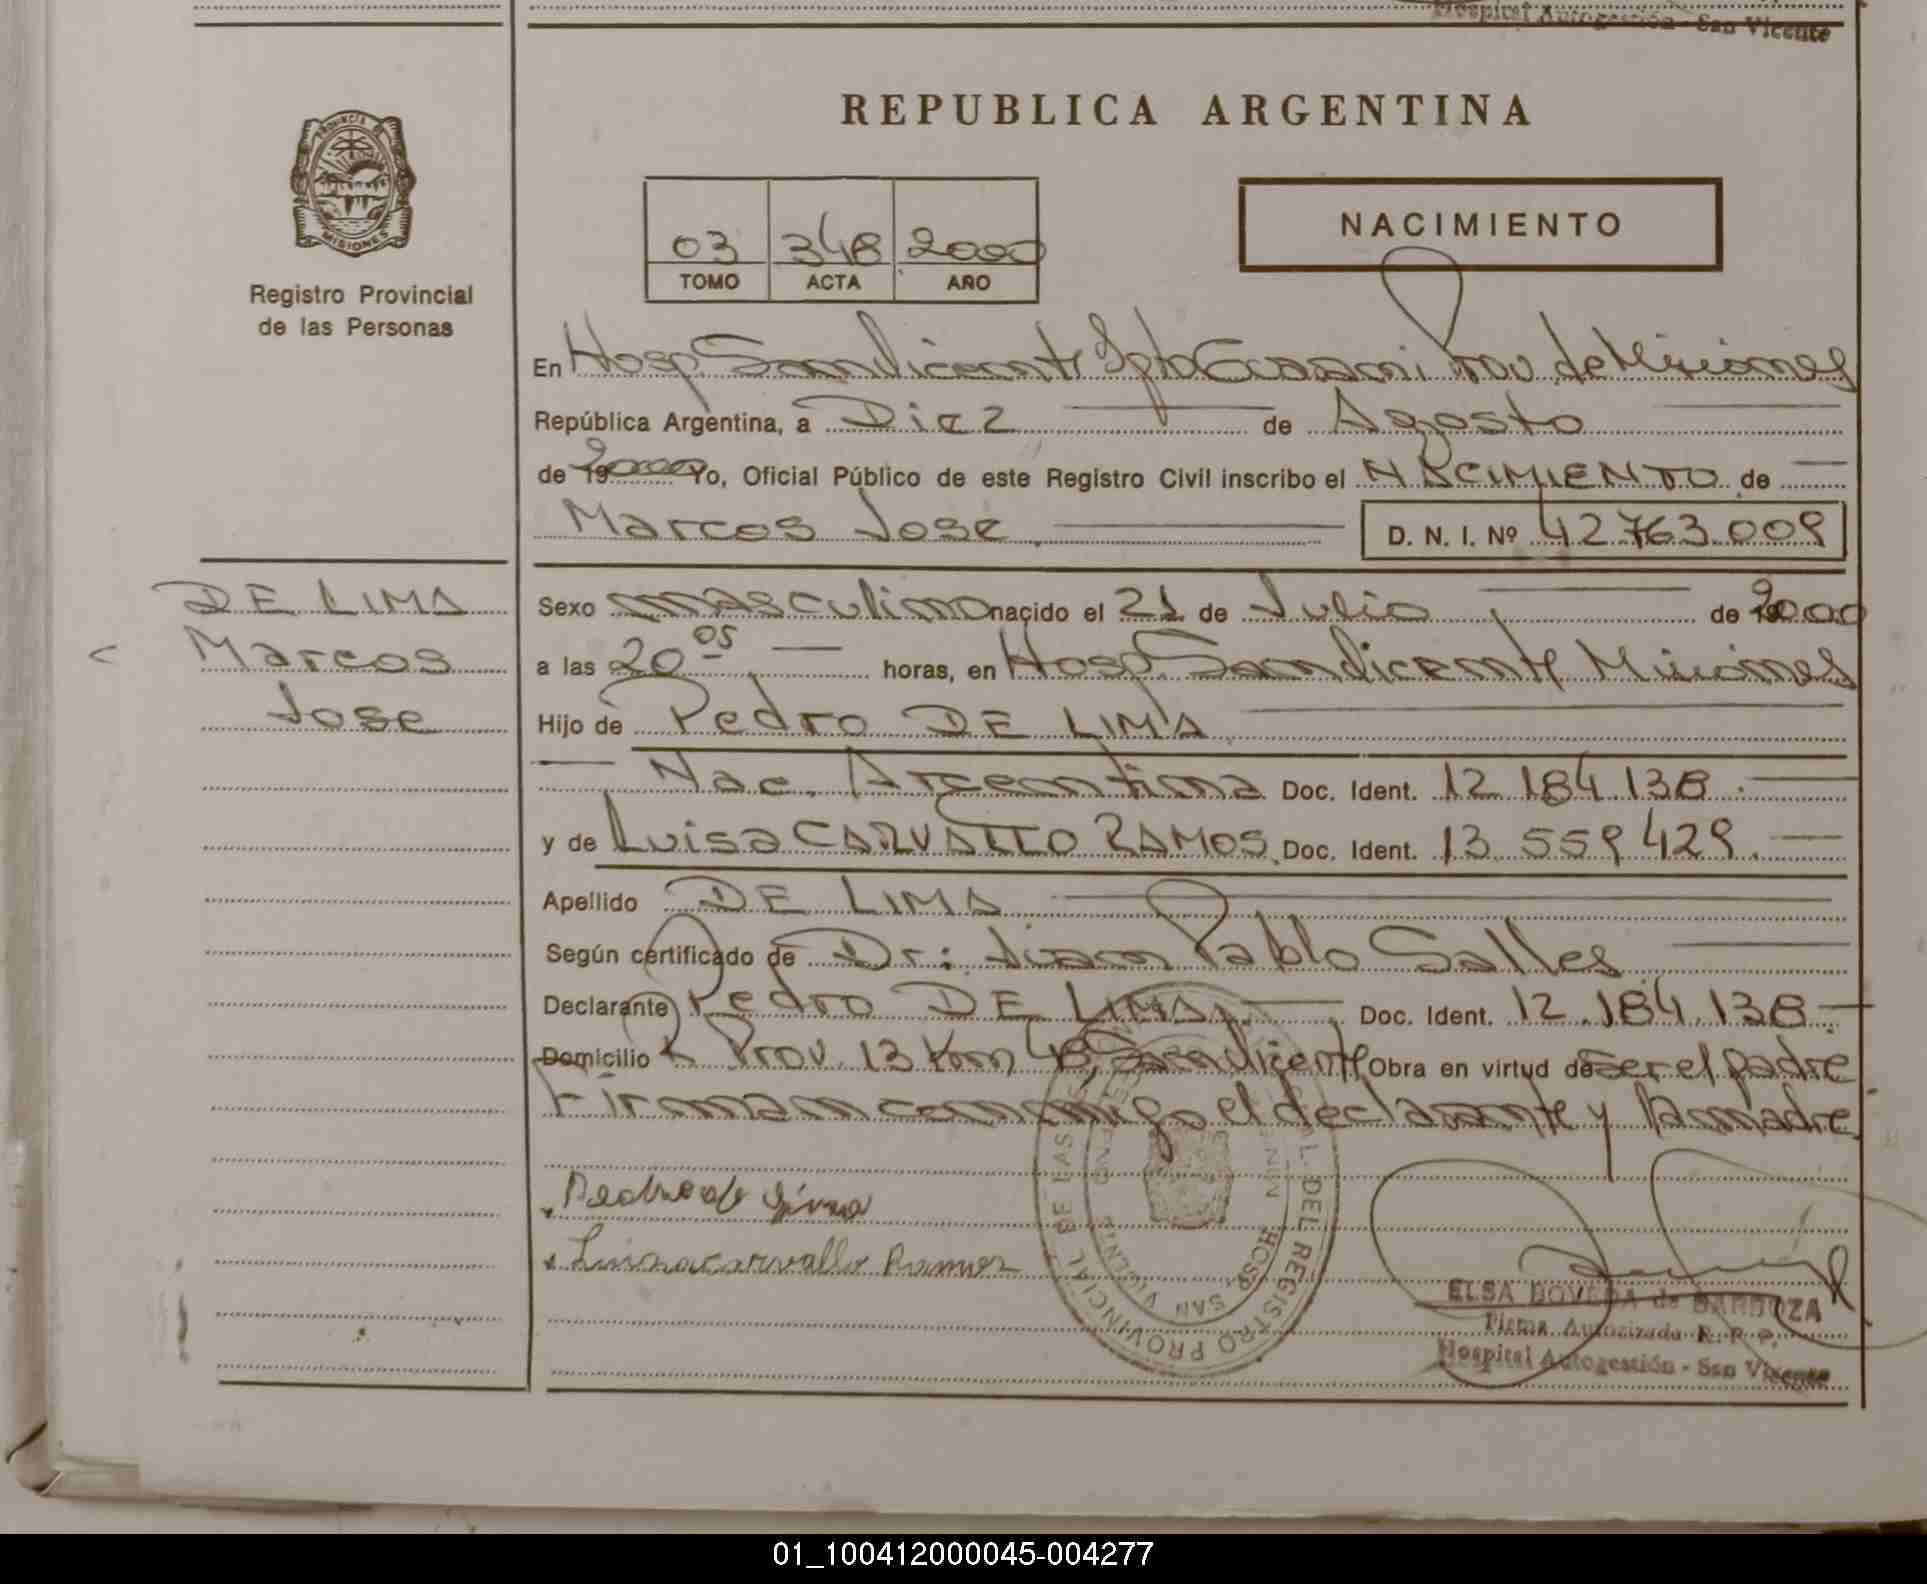 Hospital Autogestión - San Vicente
REPUBLICA ARGENTINA
PROVINCIA DE
MISIONES
Registro Provincial
de las Personas
03 348 2000
TOMO ACTA AÑO
NACIMIENTO
En Hosp. San Vicente Dpto Guarani Prov. de Misiones
República Argentina, a Diez de Agosto
de 19 2000 Yo, Oficial Público de este Registro Civil inscribo el NACIMIENTO de
Marcos Jose D. N. I. Nº 42.763.009
DE LIMA
Marcos
Jose
Sexo masculino nacido el 21 de Julio de 19 2000
a las 20 05 horas, en Hosp. San Vicente Misiones
Hijo de Pedro DE LIMA
Nac. Argentina Doc. Ident. 12.184.138.
y de Luisa CARVALLO RAMOS. Doc. Ident. 13.559.429.
Apellido DE LIMA
Según certificado de Dr: Juan Pablo Salles
Declarante Pedro DE LIMA. Doc. Ident. 12.184.138.
Domicilio R Prov. 13 Km 48, San Vicente Obra en virtud de ser el padre
Firman conmigo el declarante y la madre.
Pedro de Lima
Luisa carvallo Ramos
REGISTRO PROVINCIAL DE LAS
HOSP. SAN VICENTE
ELSA BOVEDA de BARBOZA
Firma Autorizada R. P. P.
Hospital Autogestión - San Vicente
01_100412000045-004277